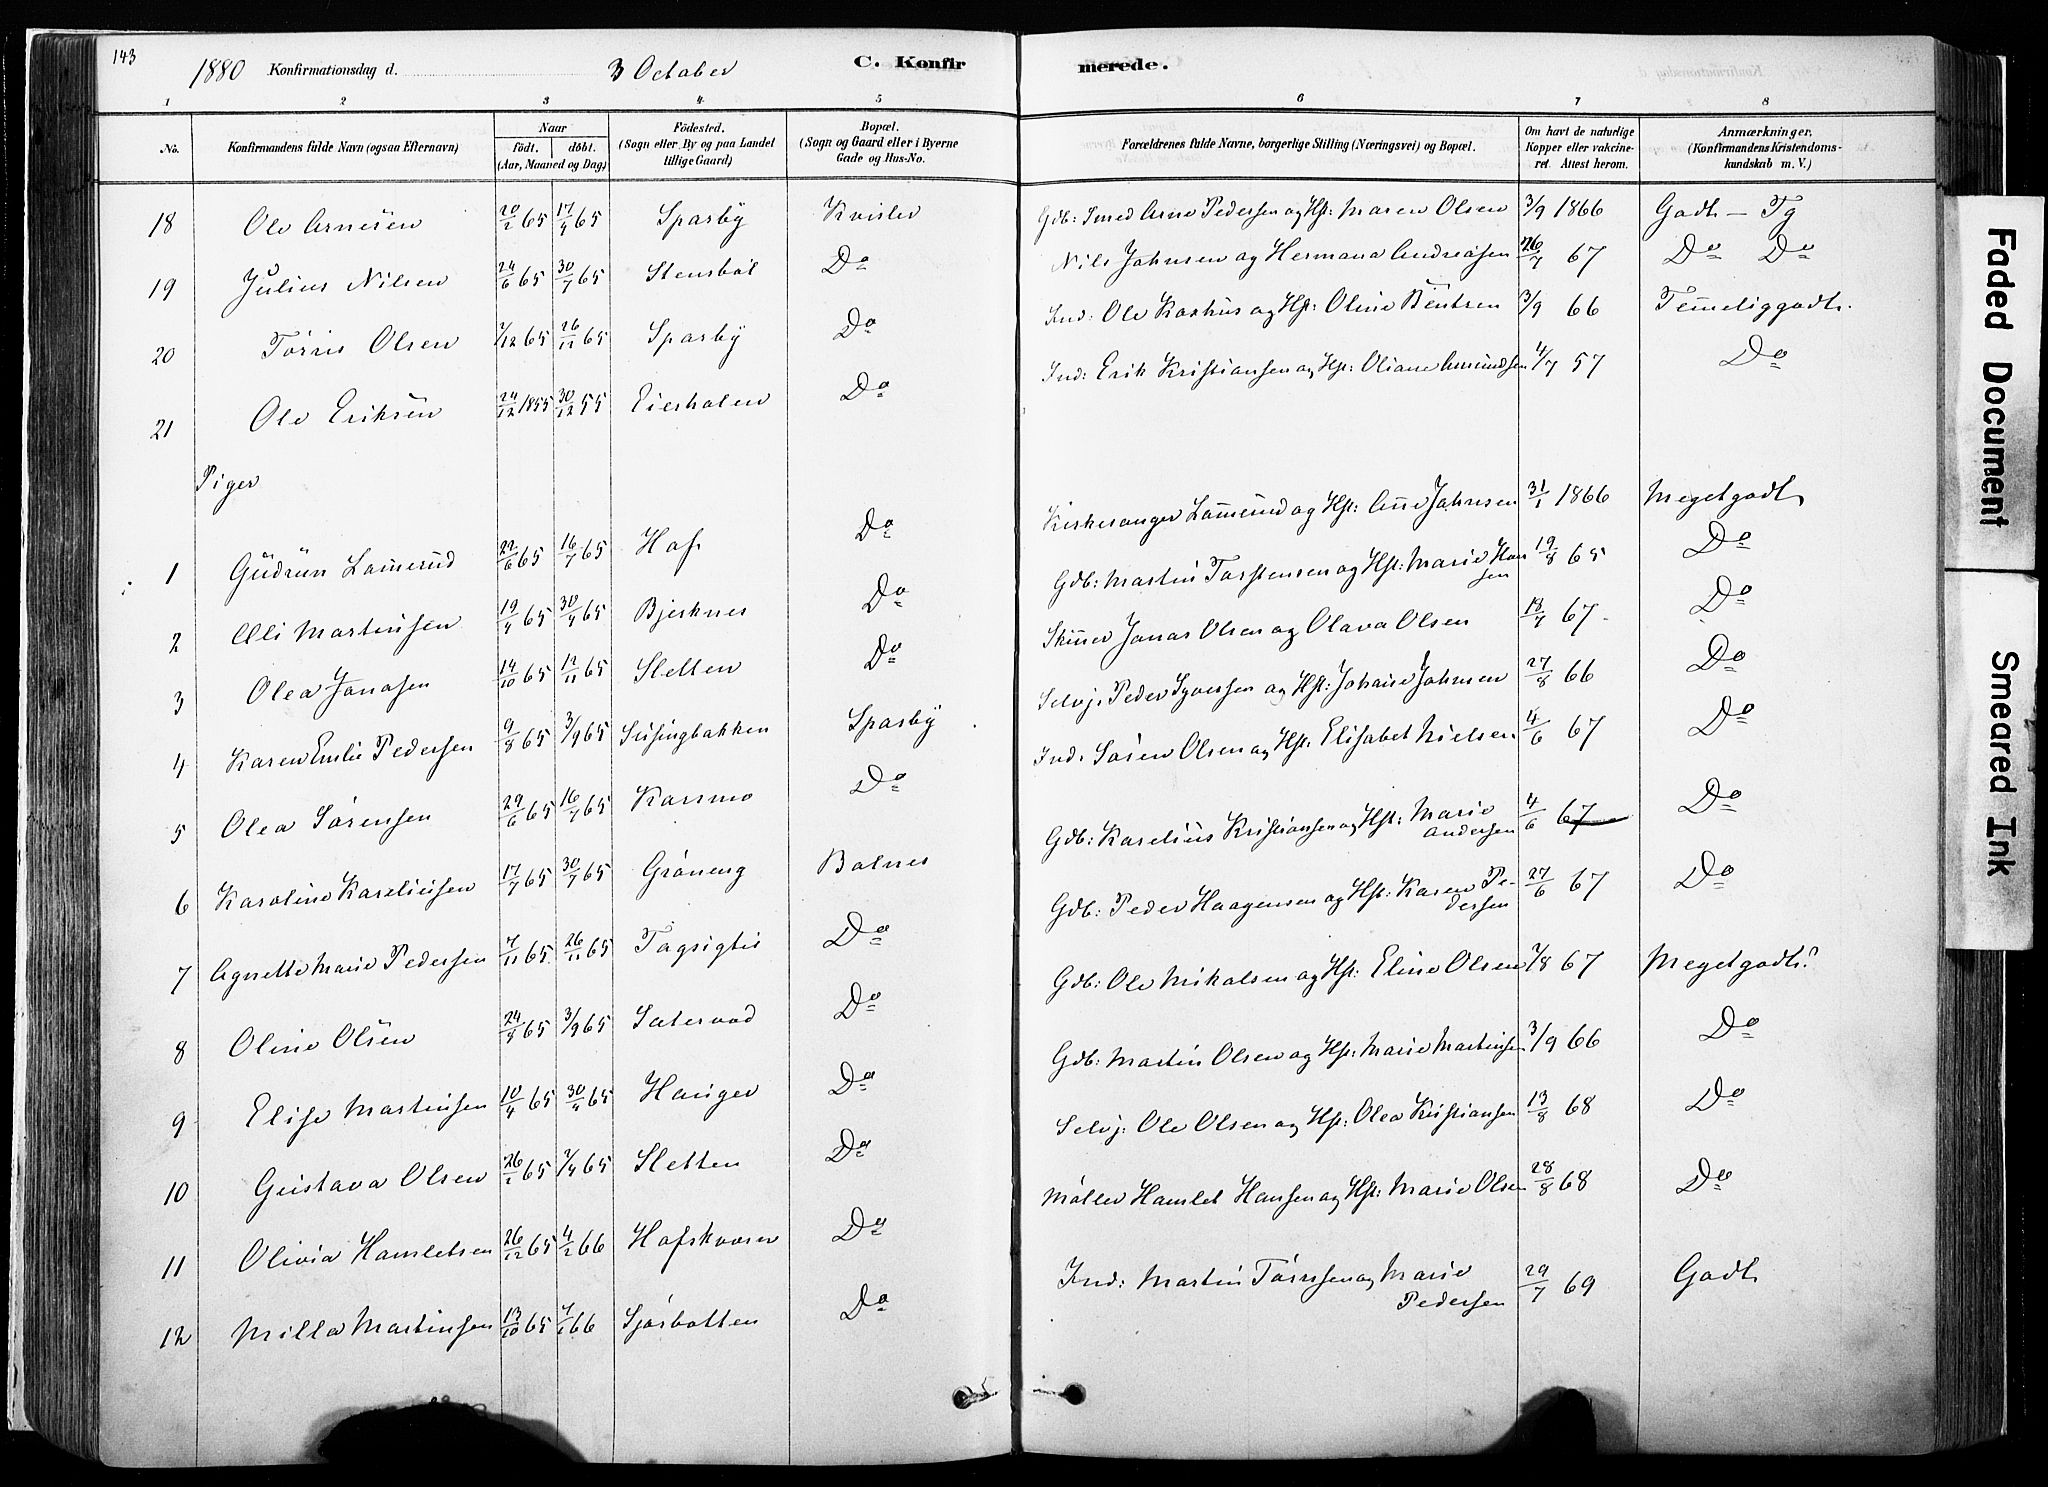 143
1880 Konfirmationsdag d. 3 October C. Konfirmerede.
1 2 3 4 5 6 7 8
No. Konfirmandens fulde Navn (ogsaa Efternavn) Naar født. døbt. (Aar, Maaned og Dag) Födested. (Sogn eller By og paa Landet tillige Gaard) Bopæl. (Sogn og Gaard eller i Byerne Gade og Hus-No. Forældrenes fulde Navne, borgerlige Stilling (Næringsvei) og Bopæl. Om havt de naturlige Kopper eller vakcineret. Attest herom. Anmærkninger. (Konfirmandens Kristendomskundskab m. V.)
18 Ole Arnesen 20/2 65 17/4 65 Sparby Kvisler Gdb: Smed Arne Pedersen og Hst: Maren Olsen 3/9 1866 Godt – Tg
19 Julius Nilsen 24/6 65 30/7 65 Stensböl Do Nils Johnsen og Hermana Andreasen 26/7 67 Do Do
20 Törris Olsen 7/12 65 26/12 65 Sparby Do Ind: Ole Roshus og Hst: Oline Bentsen 3/9 66 Temeliggodt.
21 Ole Eriksen 24/12 1855 30/12 55 Eierholen Do Ind: Erik Kristiansen og Hst: Oliane Amundsen 4/7 57 Do
Piger
1 Gudrun Lammerud 22/6 65 16/7 65 Hof Do Kirkesanger Lammerud og Hst: Ane Johnsen 31/1 1866 Megetgodt
2 Oli Martinsen 19/4 65 30/4 65 Bjerknes Do Gdb: Martin Torstensen og Hst: Marie Hansen 19/8 65 Do
3 Olea Jonasen 14/10 65 12/11 65 Sletten Do Skinner Jonas Olsen og Olava Olsen 18/7 67 Do
4 Karen Emilie Pedersen 9/8 65 3/9 65 Susingbakken Sparby Selvj: Peder Syversen og Hst: Johanne Johnsen 27/8 66 Do
5 Olea Sörensen 29/6 65 16/7 65 Karsmo Do Ind: Sören Olsen og Hst: Elisabet Nielsen 4/6 67 Do
6 Karoline Kareliusen 17/7 65 30/7 65 Gröneng Bolnes Gdb: Karelius Kristiansen og Hst: Marie Andersen 4/6 67 Do
7 Agnette Marie Pedersen 7/11 65 26/11 65 Tagsigtis Do Gdb: Peder Haagensen og Hst: Karen Pedersen 27/6 67 Do
8 Oline Olsen 24/8 65 3/9 65 Do Gdb: Ole Mikalsen og Hst: Eline Olsen 7/8 67 Megetgodt?
9 Elise Martinsen 10/4 65 30/4 65 Hanger Do Gdb: Martin Olsen og Hst: Marie Martinsen 3/9 66 Do
10 Gustava Olsen 26/2 65 2/4 65 Sletten Do Selvj: Ole Olsen og Hst: Olea Kristiansen 13/8 68 Do
11 Olivia Hamletsen 26/12 65 4/2 66 Hofskværn Do Møller Hamlet Hansen og Hst: Marie Olsen 28/8 68 Do
12 Milla Martinsen 13/10 65 7/1 66 Sjörbotten Do Ind: Martin Törrisen og Marie Pedersen 29/7 69 Godt
Faded Document
Smeared Ink